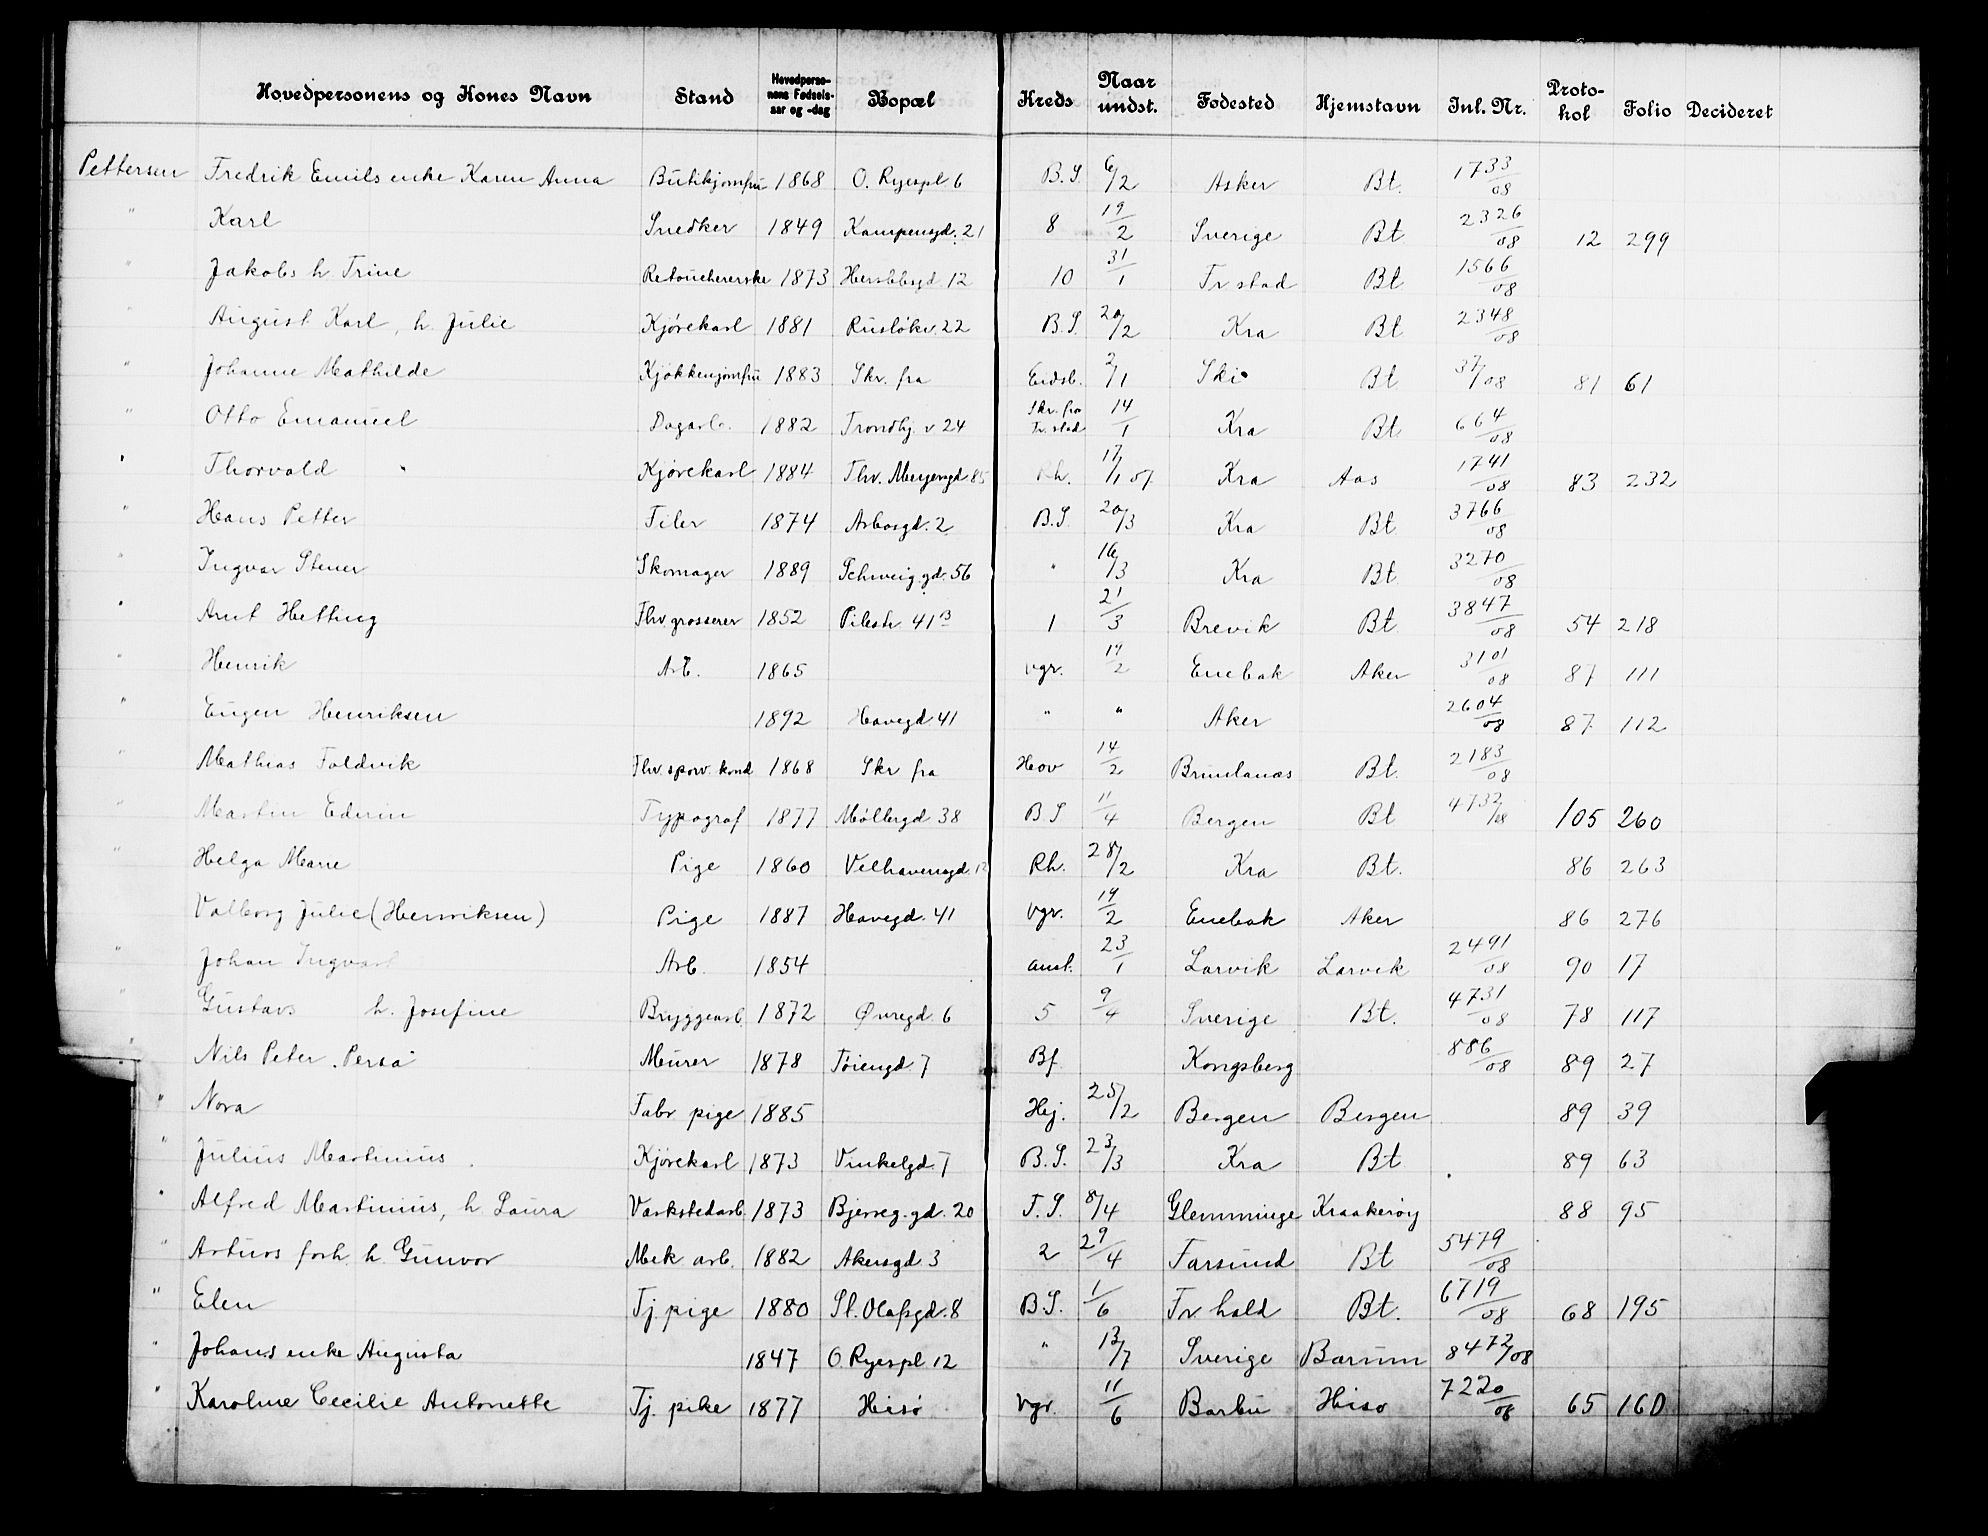 Hovedpersonens og Kones Navn Stand Hovedpersonens Fødselsaar og -dag Bopæl Kreds Naar undst. Fødested Hjemstavn Inl. Nr. Protokol Folio Decideret
Pettersen Fredrik Emils enke Karen Anna Butikjomfru 1868 O. Ryespl 6 B.S. 6/2 Asker Bt. 1733/08
" Karl Snedker 1849 Kampensgd. 21 8 19/2 Sverige Bt 2326/08 12 299
" Jakobs h. Trine Retouchererske 1873 Herslebsgd. 12 10 31/1 Fr stad Bt 1566/08
" August Karl, h. Julie Kjørekarl 1881 Ruseløkv. 22 B.S. 20/2 Kra Bt 2348/08
" Johanne Mathilde Kjøkkenjomfru 1883 Skr. fra Eidsb. 2/1 Ski Bt 37/08 81 61
" Otto Emanuel Dagarb. 1882 Trondhj. v 24 Skr. fra Fr. stad 14/1 Kra Bt 664/08
" Thorvald " Kjørekarl 1884 Thv. Meyersgd 85 Rh. 17/1 07. Kra Aas 1741/08 83 232
" Hans Petter Filer 1874 Arbosgd. 2 B.S. 20/3 Kra Bt 3766/08
" Ingvar Stener Skomager 1889 Schweig.gd. 56 " 16/3 Kra Bt 3270/08
" Arnt Hetting Fhv. grosserer 1852 Pilestr 41 B 1 21/3 Brevik Bt 3847/08 54 218
" Henrik Arb. 1865 vgr. 19/2 Enebak Aker 3101/08 87 111
" Eugen Henriksen 1892 Havegd. 41 " " Aker 2604/08 87 112
" Mathias Foldvik Fhv. sporv. kond 1868 Skr fra Hov 14/2 Brunlanæs Bt. 2183/08
" Martin Edvin Typograf 1877 Møllergd 38 B.S 11/4 Bergen Bt 4732/08 105 260
" Helga Marie Pige 1860 Velhavensgd. 12 Rh. 28/2 Kra Bt. 86 263
Valborg Julie (Henriksen) Pige 1887 Havegd. 41 vgr. 19/2 Enebak Aker 86 276
" Johan Ingvart Arb. 1854 anst. 23/1 Larvik Larvik 2491/08 90 17
" Gustavs h. Josefine Bryggearb. 1872 Øvregd. 6 5 9/4 Sverige Bt. 4731/08 78 117
" Nils Peter. Persa Murer 1878 Tøiengd 7 Bf. Kongsberg 886/08 89 27
" Nora Fabr pige 1885 Hej. 25/2 Bergen Bergen 89 39
" Julius Martinius. Kjørekarl 1873 Vinkelgd. 7 B.S. 23/3 Kra Bt 89 63
" Alfred Martinius, h. Laura Værkstedarb. 1873 Bjerreg. gd. 20 F.S. 8/4 Glemminge Kraakerøy 88 95
" Arturs forh. h. Gunvor Mek arb. 1882 Akersgd. 3 2 29/4 Farsund Bt 5479/08
" Elen Tj. pige 1880 St. Olafsgd. 8 B.S. 1/6 Fr. hald Bt. 6719/08 68 195
" Johans enke Augusta 1847 O. Ryespl 12 " 13/7 Sverige Bærum 8472/08
" Karoline Cecilie Antonette Tj. pike 1877 Hisø vgr. 11/6 Barbu Hisø 7220/08 65 160